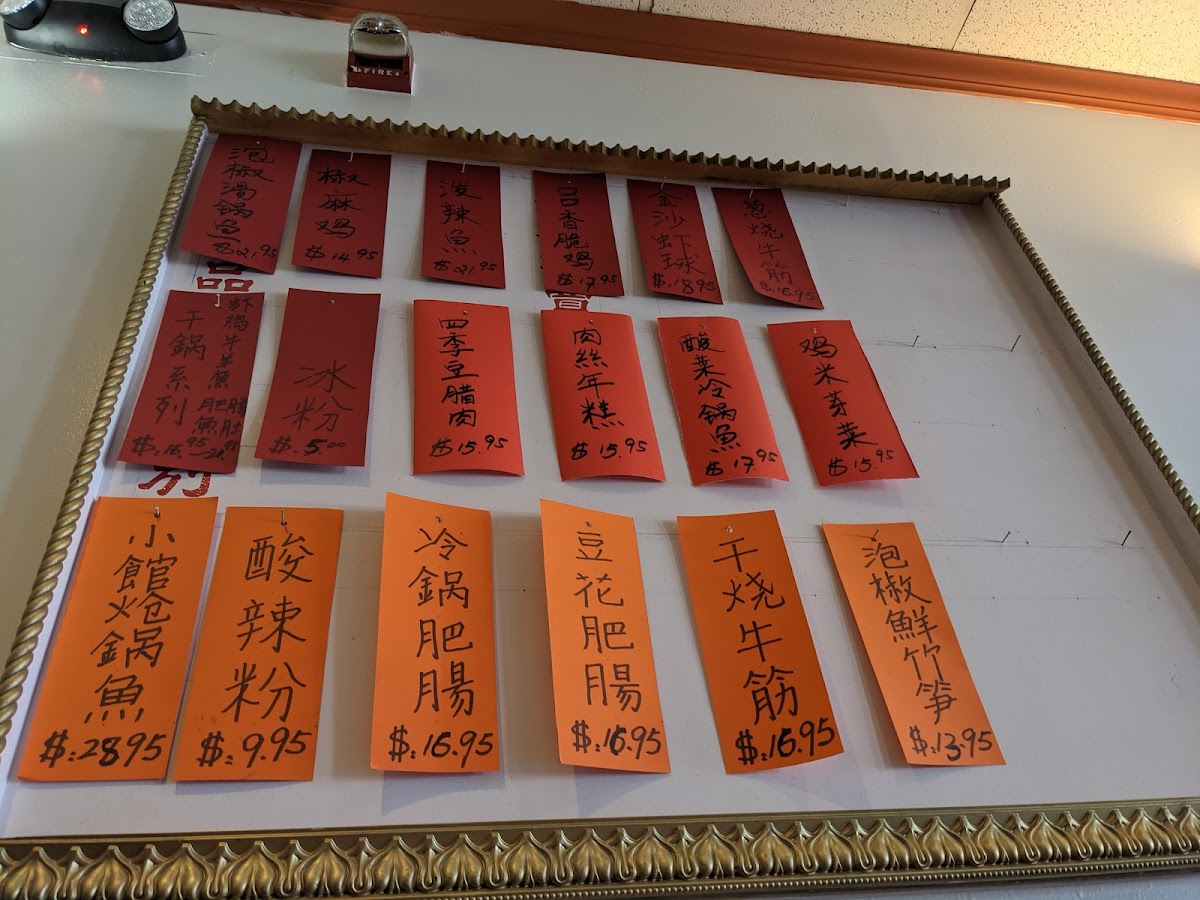 FIRE
泡椒湯锅魚
$21.95
椒麻鸡
$14.95
泼辣魚
$21.95
口口香脆鸡
$17.95
金沙虾球
$.18.95
葱烧牛筋
$.16.95
品
干鍋系列
$.16.95
冰粉
$.5.00
四季豆腊肉
$15.95
肉絲年糕
$15.95
酸菜冷锅魚
$17.95
鸡米芽菜
$15.95
别
小館炝鍋魚
$.28.95
酸辣粉
$.9.95
冷鍋肥腸
$.16.95
豆花肥腸
$.16.95
干烧牛筋
$.16.95
泡椒鮮竹笋
$.13.95